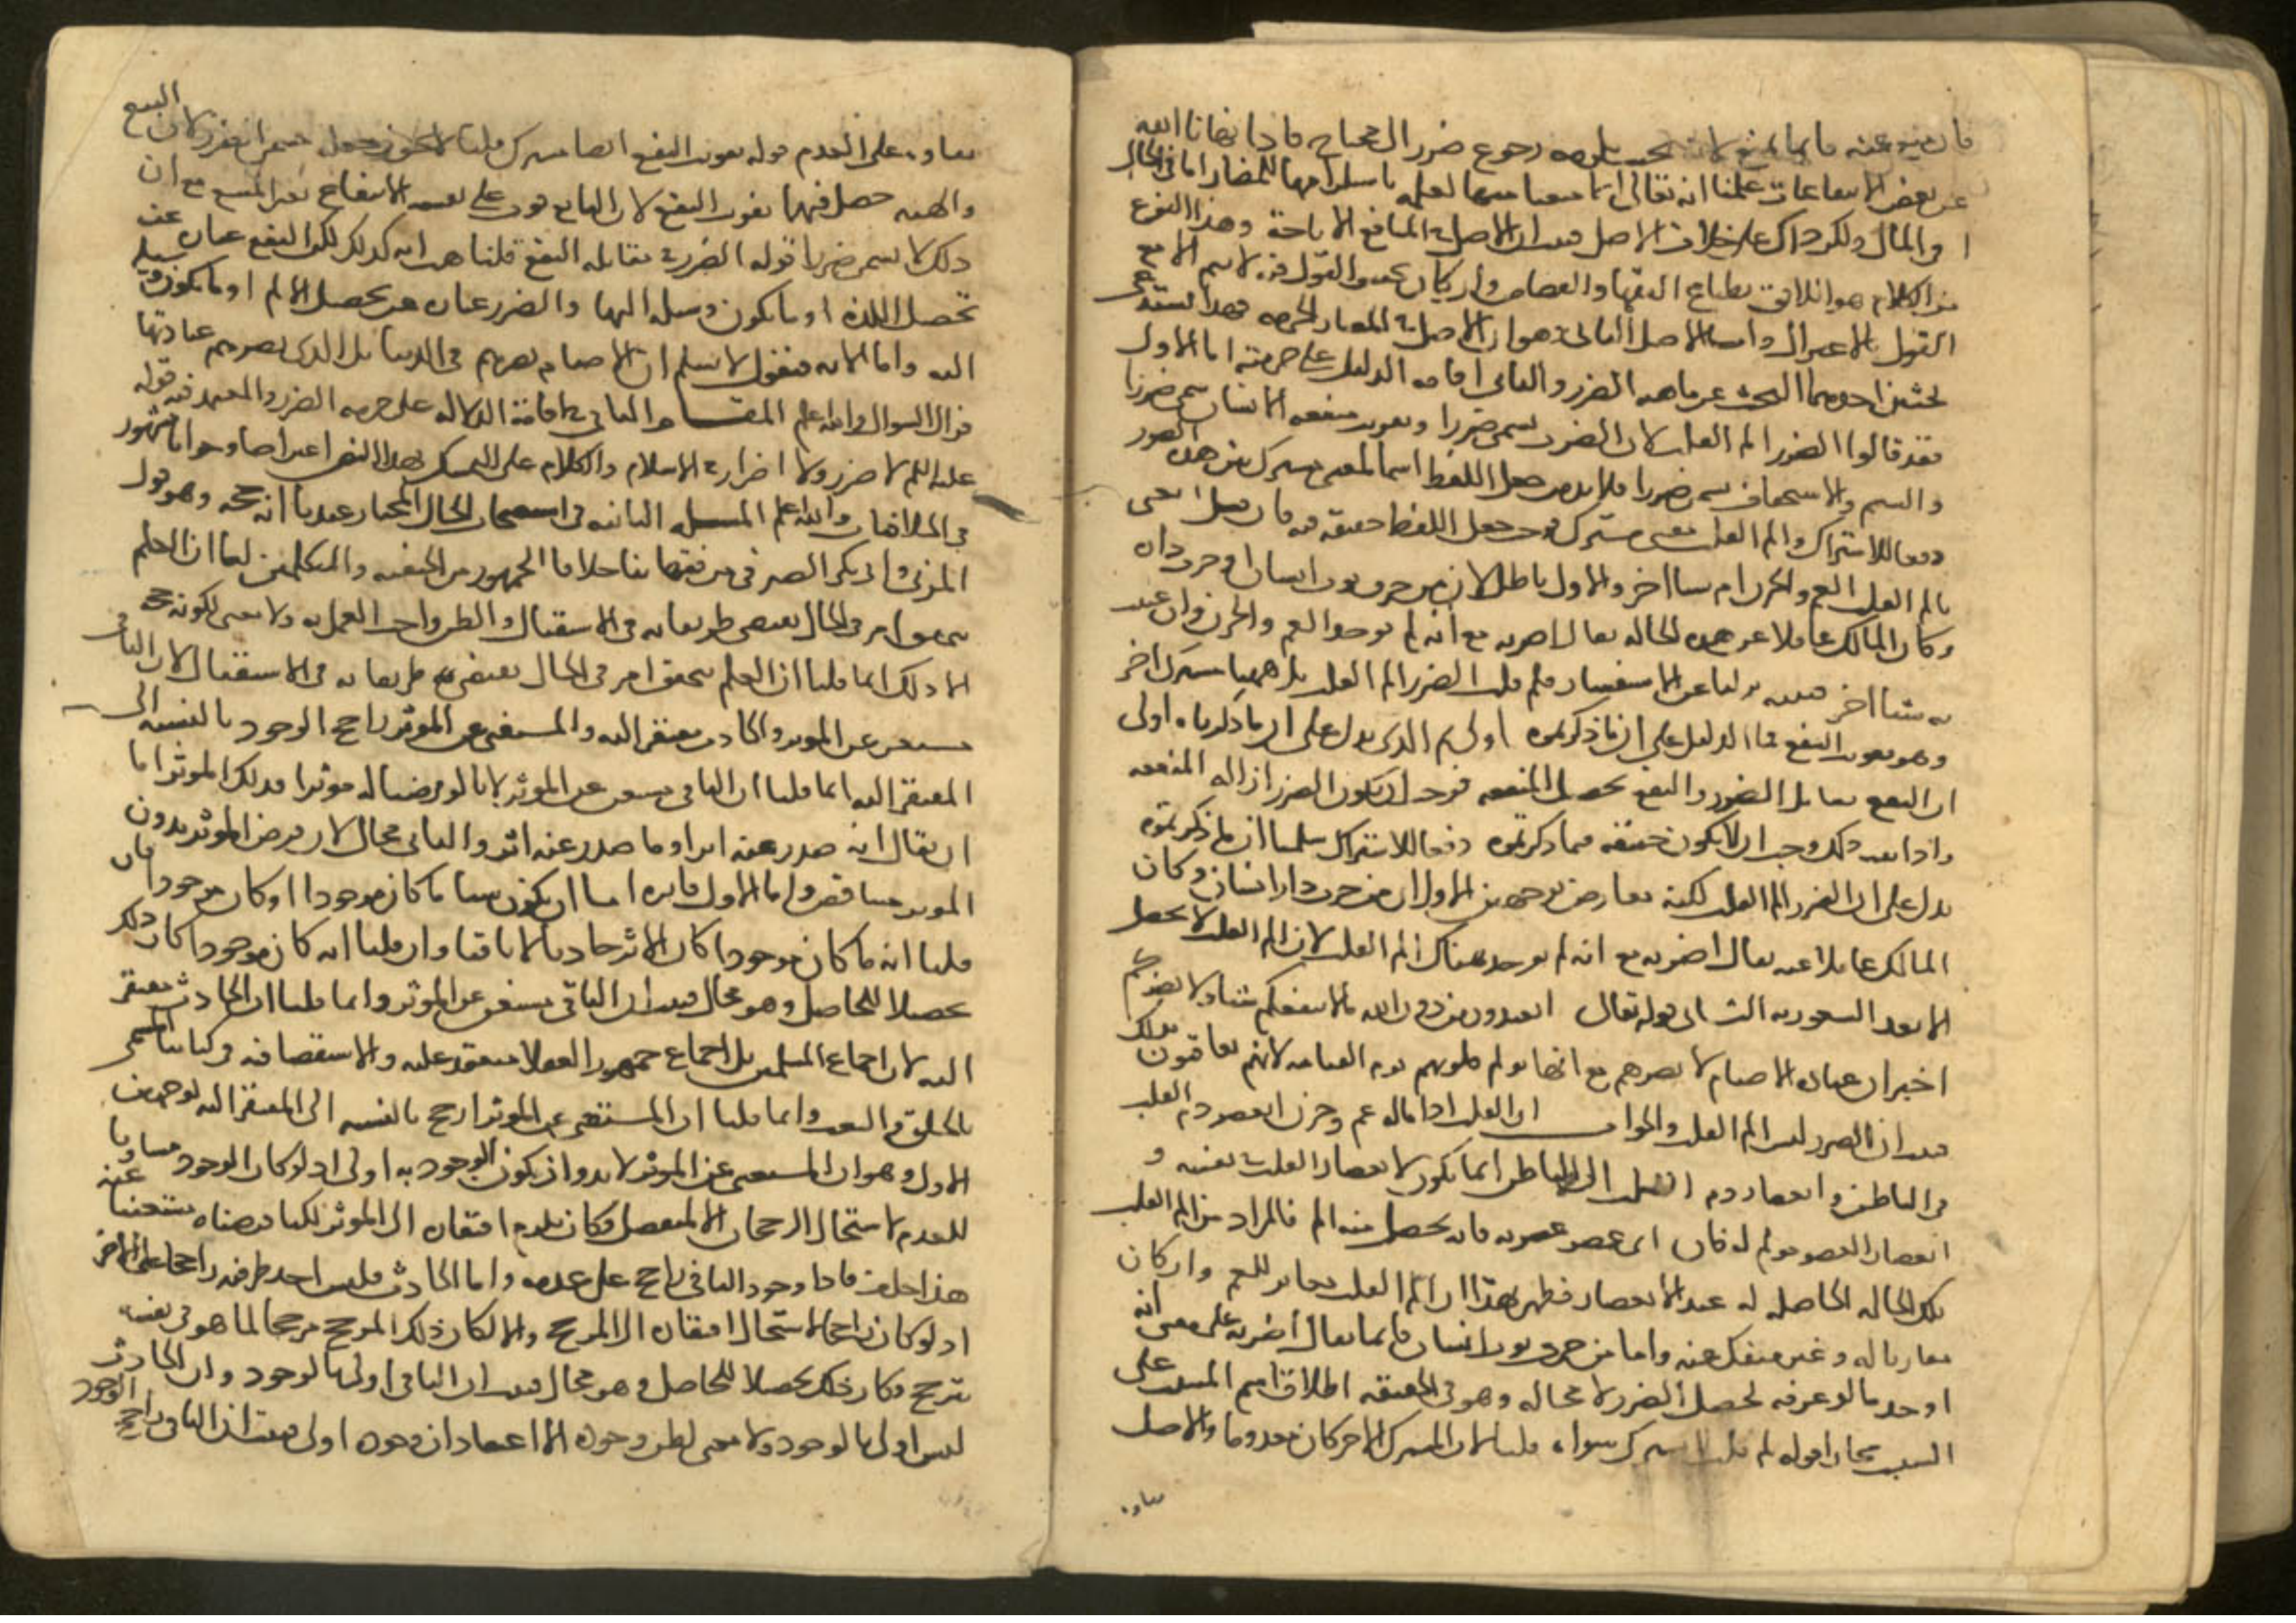 فان منع عنه فانما يمنع لانه بحيث يلزمه رجوع ضرر الى محتاج فاذا نهانا الله
عن بعض الانتفاعات علمنا انه تعالى انما منعنا منها لعلمه باستلزامها للمضار اما في الحال
او في المال ولكن ذاك على خلاف الاصل فثبت ان الاصل في المنافع الاباحة وهذا النوع
من الكلام هو اللائق بطباع الفقها والقضاة وان كان تحقيق القول فيه لا يتم الا مع
القول بالاعتزال واما الاصل الثاني وهو ان الاصل في المضار الحرمه فهذا يستدعي
بحثين احدهما البحث عن ماهيه الضرر والثاني اقامه الدليل على حرمته اما الاول
فقد قالوا الضرر الم القلب لان الضرب يسمى ضررا وتفويت منفعه الانسان يسمى ضررا
والشتم والاستخفاف يسمى ضررا فلا بد من جعل اللفظ اسما لمعنى مشترك بين هذه الصور
دفعا للاشتراك والم القلب معنى مشترك فوجب جعل اللفظ حقيقه فيه فان قيل اتعنى
بالم القلب الغم والحزن ام شيا اخر والاول باطل لان من خرق ثوب انسان او خرب داره
وكان المالك غافلا عن هذه الحاله يقال اضر به مع انه لم يوجد الغم والحزن وان عنيت
به شيا اخر فبينه نزلنا عن الاستفسار فلم قلت الضرر الم القلب بل ههنا مشترك اخر
وهو تفويت النفع فما الدليل على ان ما ذكرتموه اولى ثم الذي يدل على ان ما ذكرناه اولى
ان النفع يقابل الضرر والنفع تحصيل المنفعه فوجب ان يكون الضرر ازاله المنفعه
واذا ثبت ذلك وجب ان لا يكون حقيقه فيما ذكرتموه دفعا للاشتراك سلمنا ان ما ذكرتموه
يدل على ان الضرر الم القلب لكنه معارض بوجهين الاول ان من خرب دار انسان وكان
المالك غافلا عنه يقال اضر به مع انه لم يوجد هناك الم القلب لان الم القلب لا يحصل
الا بعد الشعور به الثاني قوله تعالى اتعبدون من دون الله ما لا ينفعكم شيا ولا يضركم
اخبر ان عباده الاصنام لا تضرهم مع انها تولم قلوبهم يوم القيامه لانهم يعاقبون بذلك
فثبت ان الضرر ليس الم القلب والجواب ان القلب اذا ناله غم وحزن انعصر دم القلب
في الباطن وانعصار دم القلب الى الباطن انما يكون لانعصار القلب في نفسه و
انعصار العضو مولم له فان اي عضو عصرته فانه يحصل منه الم فالمراد من الم القلب
تلك الحاله الحاصله له عند الانعصار فظهر بهذا ان الم القلب مغاير للغم وان كان
مقارنا له وغير منفك عنه واما من خرق ثوب انسان فانما يقال اضر به على معنى انه
اوجد ما لو عرفه لحصل الضرر لا محاله وهو في الحقيقه اطلاق اسم المسبب على
السبب مجازا قوله لم قلت لا مشترك سواه قلنا لان المشترك الاخر كان معدوما والاصل
بقاوه
بقاوه على العدم قوله تفويت النفع ايضا مشترك قلنا لا يجوز جعل مسمى الضرر لان البيع
والهبه حصل فيهما تفويت النفع لان البايع فوت على نفسه الانتفاع بعين المبيع مع ان
ذلك لا يسمى ضررا قوله الضرر في مقابله النفع قلنا هب انه كذلك لكن النفع عباره عن
تحصيل اللذه او ما يكون وسيله اليها والضرر عباره عن تحصيل الالم او ما يكون وسيله
اليه واما الايه فنقول لا نسلم ان الاصنام تضرهم في الدنيا بل الذي يضرهم عبادتها
فزال السوال والله اعلم المقام الثاني في اقامة الدلاله على حرمه الضرر والمعتمد فيه قوله
عليه السلم لا ضرر ولا اضرار في الاسلام والكلام على التمسك بهذا النص اعتراضا وجوابا مشهور
في الخلافيات والله اعلم المسيله الثانيه في استصحاب الحال المختار عندنا انه حجه وهو قول
المزني وابي بكر الصيرفي من فقهاينا خلافا لجمهور من الحنفيه والمتكلمين لنا ان العلم
بتحقق امر في الحال يقتضي ظن بقايه في الاستقبال والظن واجب العمل به ولا معنى لكونه حجه
الا ذلك انما قلنا ان العلم بتحقق امر في الحال يقتضي ظن بقايه في الاستقبال لان الباقي
مستغن عن الموثر والحادث مفتقر اليه والمستغني عن الموثر راجح الوجود بالنسبه الى
المفتقر اليه انما قلنا ان الباقي مستغن عن الموثر لانا لو فرضنا له موثرا فذلك الموثر اما
ان يقال انه صدر عنه اثر او ما صدر عنه اثر والثاني محال لان فرض الموثر بدون
الموثر متناقض واما الاول فاثره اما ان يكون شيا ما كان موجودا او كان موجودا فان
قلنا انه ما كان موجودا كان الاثر حادثا لا باقيا وان قلنا انه كان موجودا كان ذلك
تحصيلا للحاصل وهو محال فثبت ان الباقي مستغن عن الموثر وانما قلنا ان الحادث مفتقر
اليه لان اجماع المسلمين بل اجماع جمهور العقلا منعقد عليه والاستقصا فيه في كتابنا المسمى
بالخلق والبعث وانما قلنا ان المستغني عن الموثر ارجح بالنسبه الى المفتقر اليه لوجهين
الاول وهو ان المستغني عن الموثر لا بد وان يكون الوجود به اولى اذ لو كان الوجود مساويا
للعدم لاستحال الرجحان الا لمنفصل فكان يلزم افتقاره الى الموثر لكنا فرضناه مستغنيا عنه
هذا خلف فاذا وجود الباقي راجح على عدمه واما الحادث فليس احد طرفيه راجحا على الاخر
اذ لو كان راجحا لاستحال افتقاره الى المرجح والا لكان ذلك المرجح مرجحا لما هو في نفسه
مترجح فكان ذلك تحصيلا للحاصل وهو محال فثبت ان الباقي اولى بالوجود وان الحادث
ليس اولى بالوجود ولا معنى لظن وجوده الا اعتقاد ان وجوده اولى فثبت ان الباقي راجح الوجود